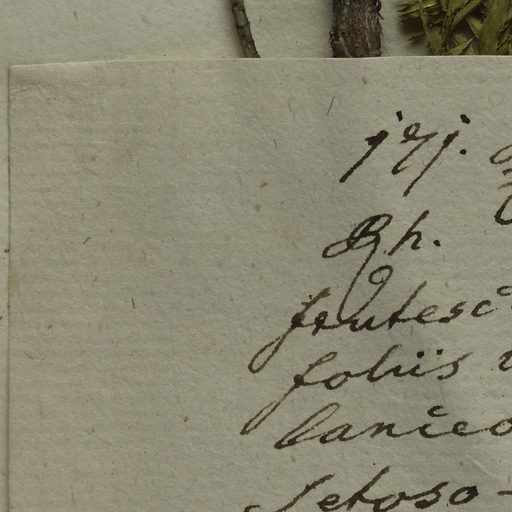 j7j.
Rh.
frutesc
foliis
lanceo
setoso-